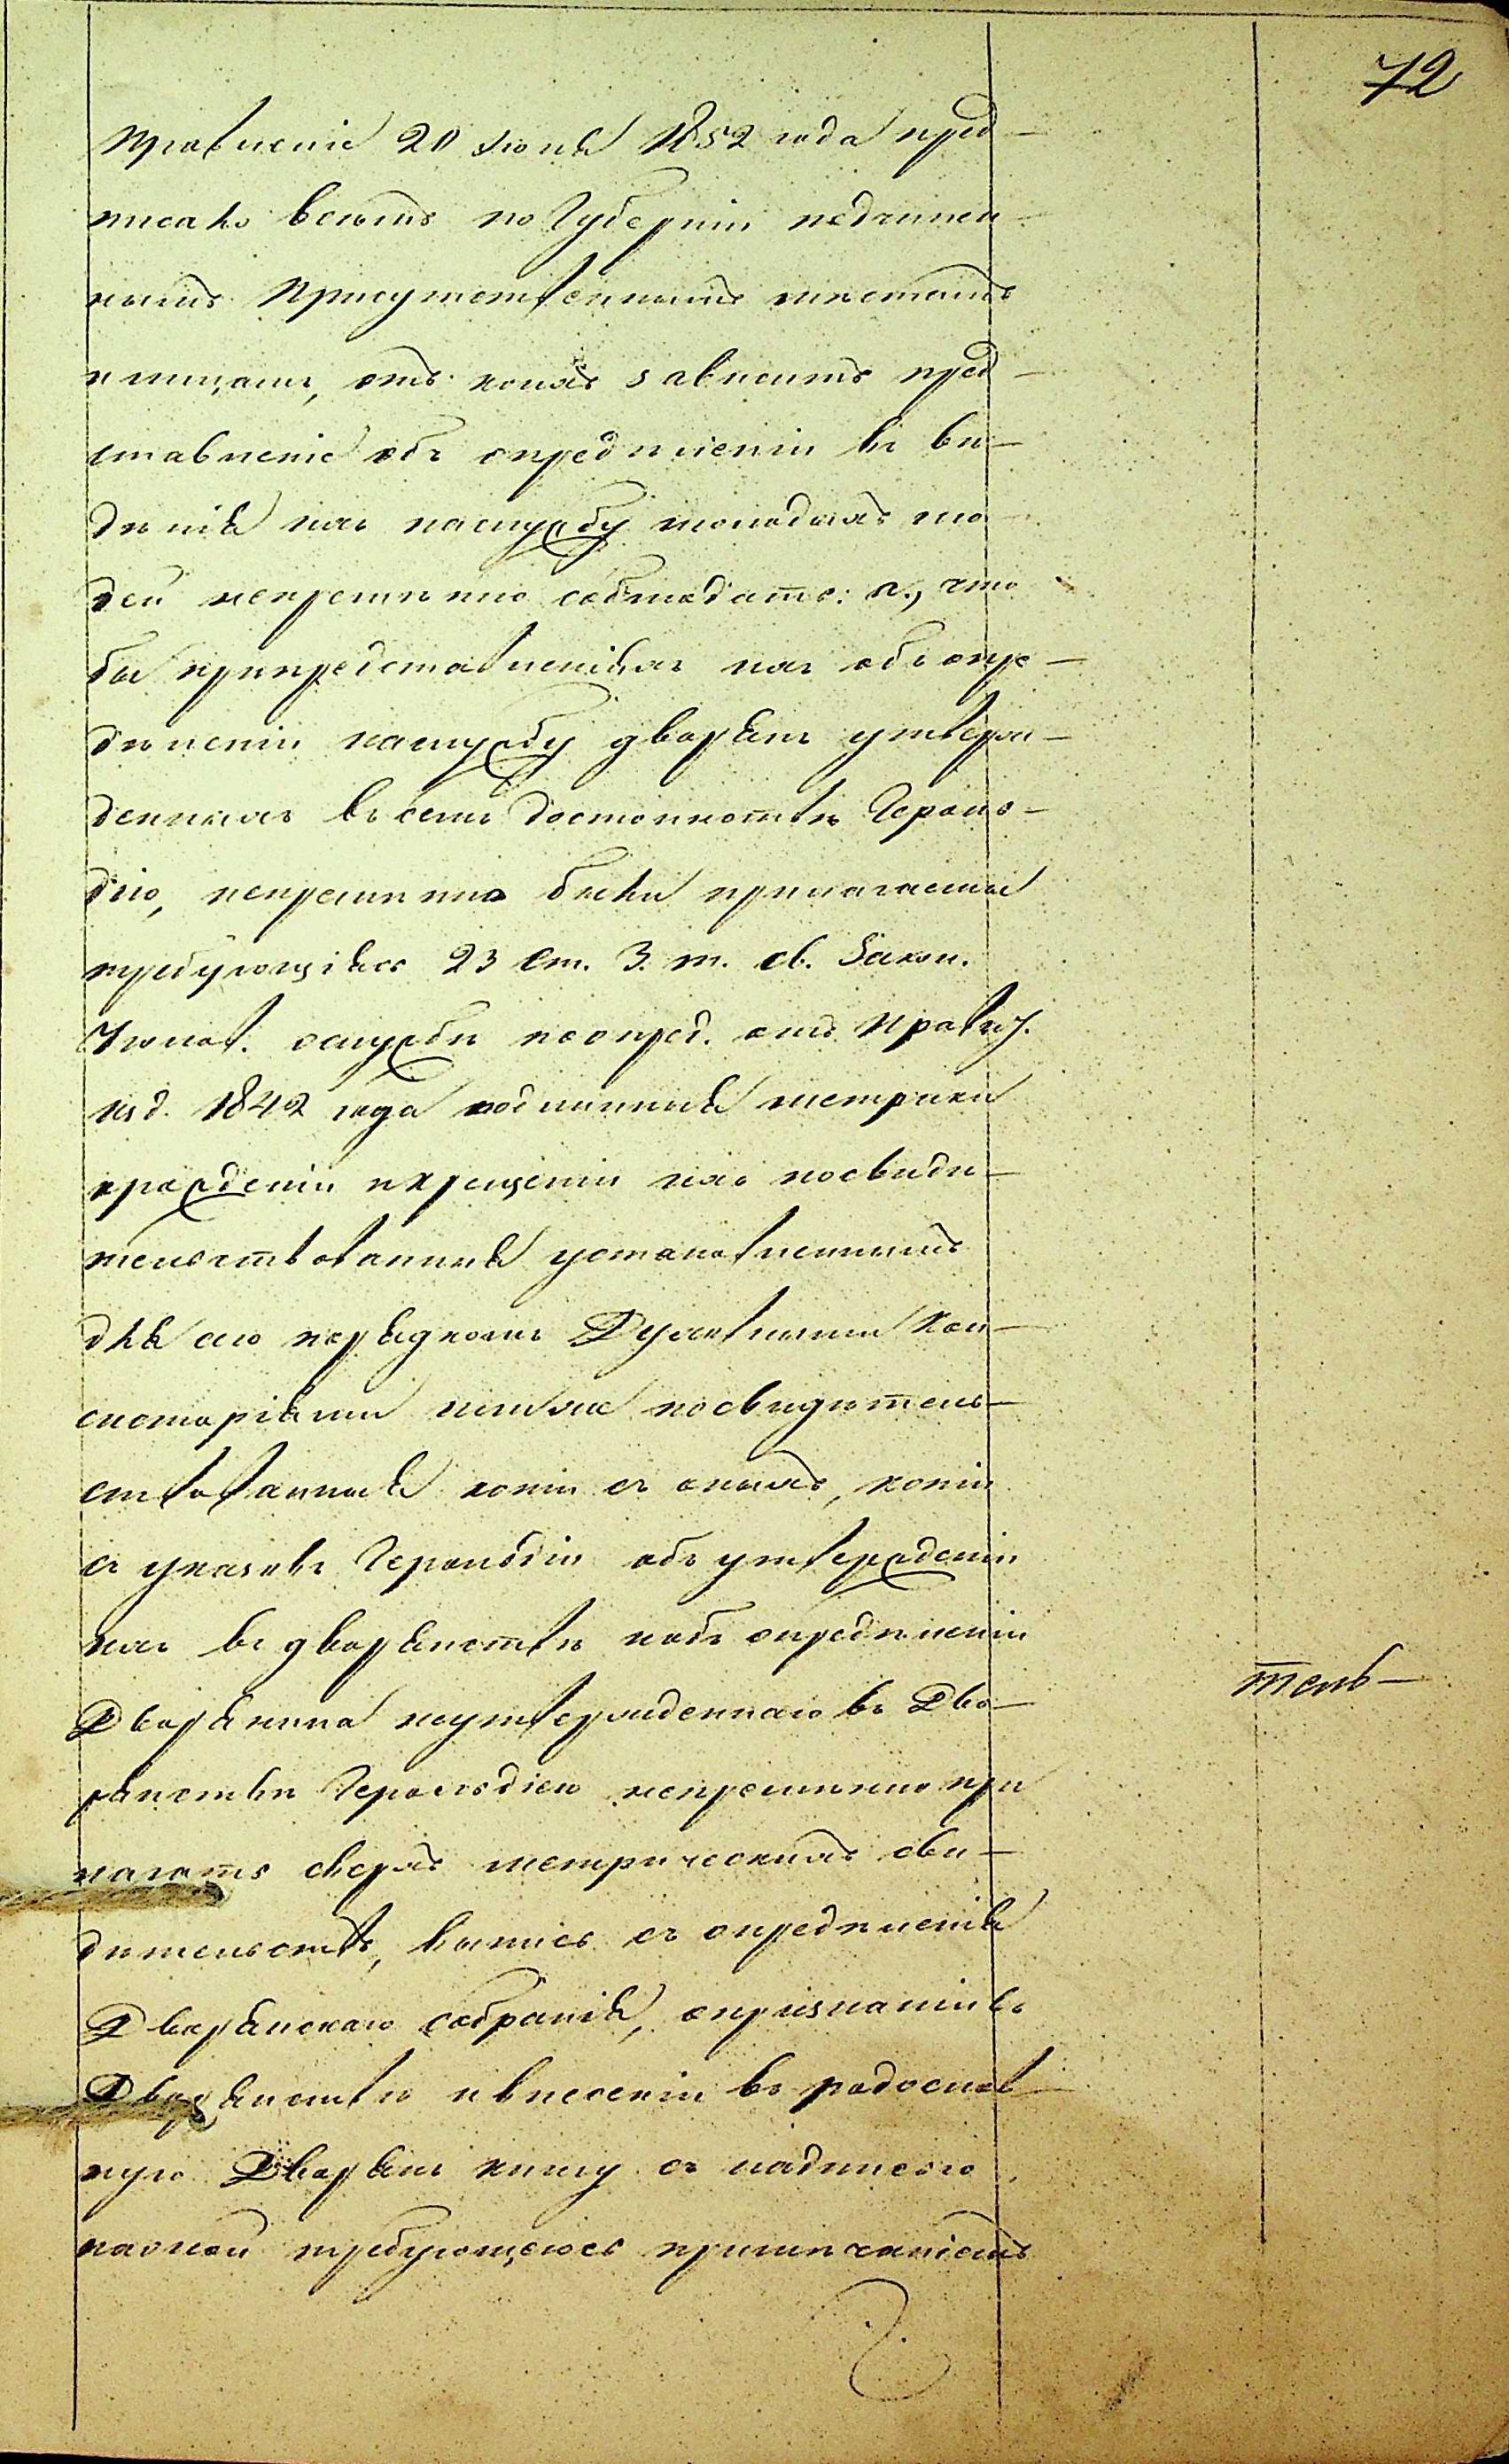 72
Правленіе 20 Іюня 1852 года пред-
писало всѣмъ по Губерніи подчинен-
нымъ Присутственнымъ мѣстамъ
и лицамъ, отъ коихъ зависитъ пред-
ставленіе объ опредѣленіи въ вѣ-
дѣнія ихъ наслужбу молодыхъ лю-
дей непремѣнно соблюдать: а., что
бы припредставленіяхъ ихъ объ опре-
дѣленіи наслужбу дворянъ утверж-
денныхъ въ семъ достоинствѣ Героль-
діею, непремѣнно были прилагаемы
требующіяся 23 ст. 3. т. св. Закон.
Уполож. ослужбѣ поопред. отъ Правит.
изд. 1842 года подлинныя метрики
орожденіи икрещеніи ихъ посвидѣ-
тельствованныя установленнымъ
для сего порядкомъ Духовными Кон-
систоріями или же посвидѣтель-
ствованныя копіи съ оныхъ, копіи
съ указовъ Герольдіи объ утвержденіи
ихъ въ дворянствѣ иобъ опредѣленіи
Дворянина неутвержденнаго въ Дво-
рянствѣ Герольдіею непремѣнно при
лагать сверхъ метрическихъ сви-
тель-
дѣтельствъ, копію съ опредѣленія
Дворянскаго собранія, опризнаніи въ
Дворянствѣ ивнесеніи въ родослов
ную Дворянъ книгу съ надписью
наоной требующеюся примѣчаніемъ